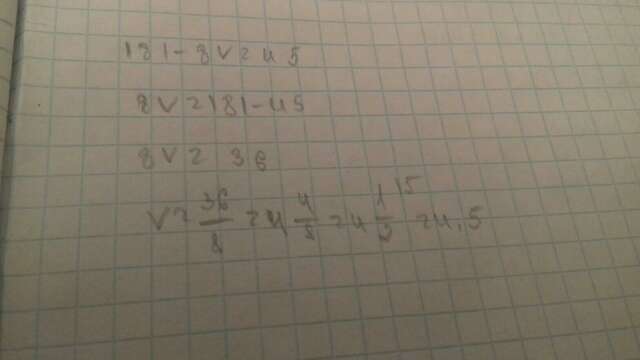 181-8V=45
8V=181-45
8V= 36
V=36/8=4 4/8=4 1/2 15 =4,5